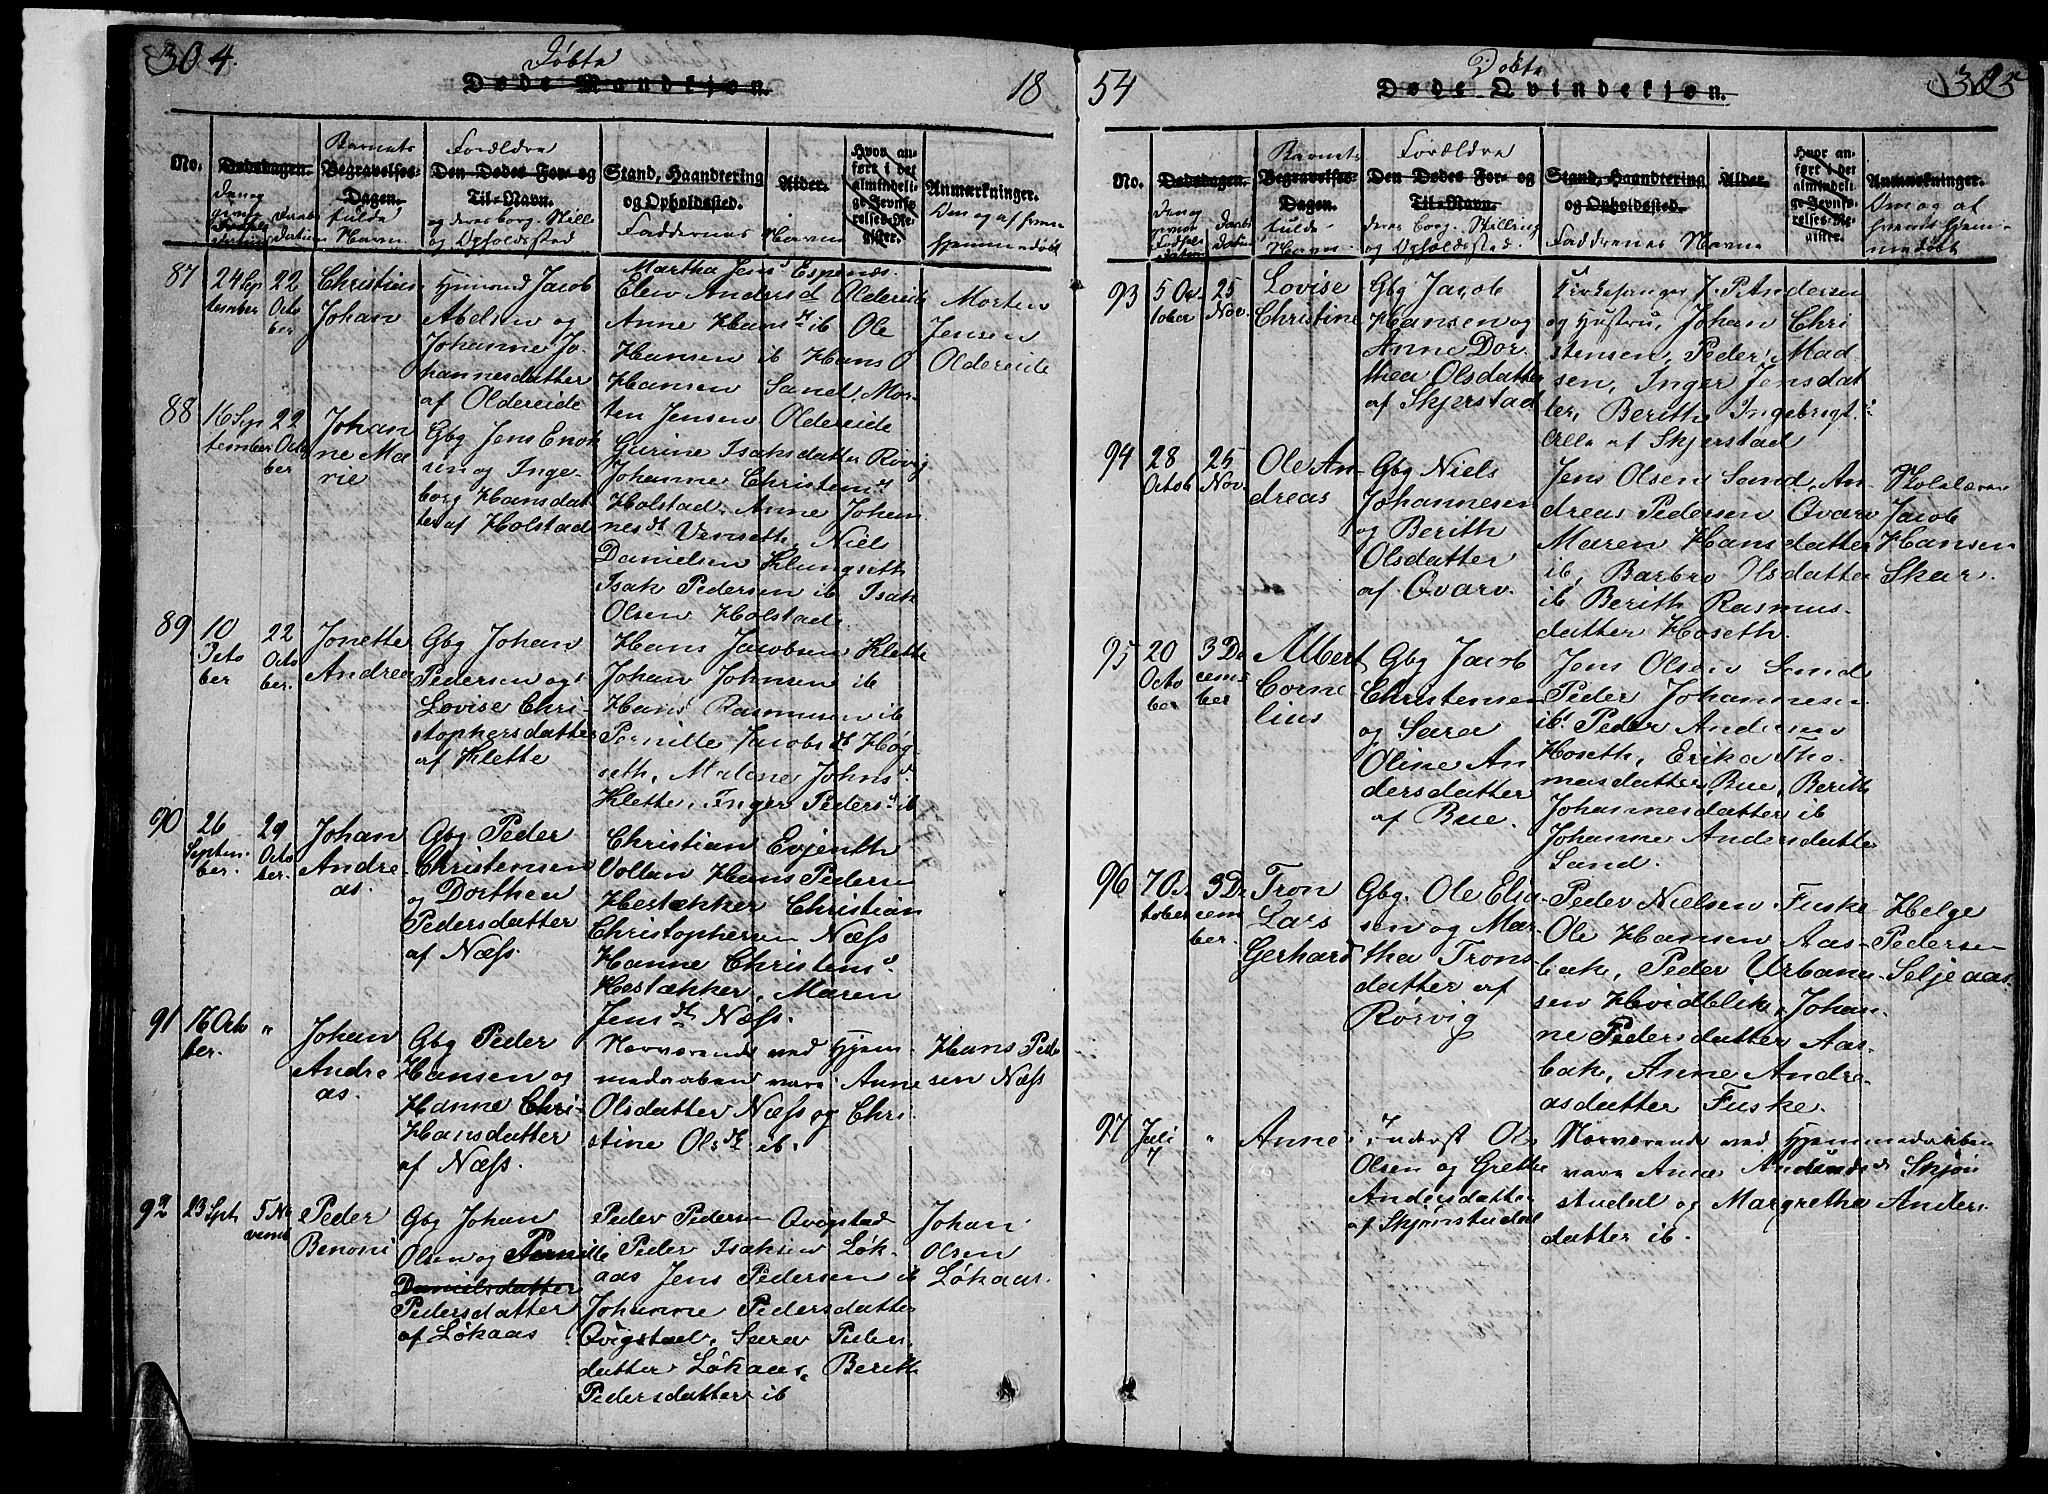 304.
Döbte
Döde Mandkjøn.
18
No.
Dødsdagen.
Barnets
Begravelses-
Dagen.
fulde
Navn
Forældre
Den Dødes For- og
Til-Navn.
og deres borg. Still.
og Opholdssted
Stand, Haandtering
og Opholdssted.
Faddernes Navne
Alder.
Hvor an-
ført i det
almindeli-
ge Jevnfø-
relses-Re-
gister.
Anmærkninger.
Om og af hvem
hjemmedøbt
87
24 Sep
tember
22
Octo
ber
Christian
Johan
Huusmand Jacob
Abelsen og
Johanne Jo
hannesdatter
af Oldereide
Martha Jens d Espenæs
Elen Anders d Oldereide
Anne Hans d ib Ole
Hansen ib Hans O
Hansen Sand, Mor-
ten Jensen Oldereide
Morten
Jensen
Oldereide
88
16 Sep
tember
22
Octo
ber
Johan
ne Ma
rie
Gbg Jens Enok
sen og Inge
borg Hansdat
ter af Holstad
Gurine Isaksdatter Røvig
Johanne Christens d
Holstad, Anne Johan
nes dt Venseth, Niels
Danielsen Klungseth
Isak Pedersen ib Isak
Olsen Holstad.
89
10
Octo
ber
22
Octo
ber.
Jonette
Andrea
Gbg Johan
Pedersen og
Lovise Chri-
stophersdatter
af Klette
Hans Jacobsen Klette
Johan Johnsen ib
Hans Rasmusen ib
Pernille Jacobs dt Høg
seth, Malene Johns d
Klette, Inger Peders d ib
90
26
Septem-
ber.
29
Octo
ber.
Johan
Andre
as.
Gbg Peder
Christensen
og Dorthea
Pedersdatter
af Næss.
Christian Evjenth
Voltan Hans Pedersen
Hestækker Christian
Christophersen Næss
Hanne Christens d.
Hestækker, Maren
Jens dt Næss.
91
16 Octo
ber.
"
Johan
Andre
as.
Gbg Peder
Hansen og
Hanne Chri-
Hansdatter
af Næss.
Nærværende ved Hjem-
medaaben vare: Anne
Olsdatter Næss og Chri
stine Ols dt ib.
Hans Peder
sen Næss
92
23 Sept
5 No
vemb
Peder
Benoni
Gbg Johan
Olsen og Pernille
Danielsdatter
Pedersdatter
af Løkaas
Peder Pedersen Qvigstad
Peder Isaksen Løk-
aas Jens Pedersen ib
Johanne Pedersdatter
Qvigstad, Sara Peders
datter Løkaas, Berith
Pedersdatter ib
Johan
Olsen
Løkaas.
54
Døbte
Døde Qvindekjøn.
305
No.
Dødsdagen.
Barnets
Begravelses-
Dagen.
fulde
Navn
Forældre
Den Dødes For- og
Til-Navn.
deres borg. Stilling
og Opholdssted.
Stand, Haandtering
og Opholdssted.
Faddernes Navne
Alder.
Hvor an-
ført i det
almindeli-
ge Jevnfø-
relses-Re-
gister.
Anmærkninger.
Om og af
hvem hjem-
medøbt
93
5 Oc
tober
25
Nov.
Lovise
Christine
Gbg Jacob
Hansen og
Anne Dor-
thea Olsdatter
af Skjerstad
Kirkesanger J. P. Andersen
og Hustru, Johan Chri
stensen, Peder Mad
sen, Inger Jensdat
ter, Berith Ingebrigt. d
Alle af Skjerstad
94
28
Octob
25
Nov.
Ole An-
dreas
Gbg Niels
Johannesen
og Berith
Olsdatter
af Qvarv.
Jens Olsen Sand, An-
dreas Pedersen Qvarv
Maren Hansdatter
ib, Barbro Olsdatter
ib Berith Rasmus-
datter Hoseth.
Skolelærer
Jacob
Hansen
Skar.
95
20
Octo
ber
3 De
cem
ber
Albert
Corne
lius
Gbg Jacob
Christensen
og Sara
Oline An
dersdatter
af Bue.
Jens Olsen Sand
Peder Johannesen
ib. Peder Andersen
Hoseth, Erika Tho
masdatter Bue, Berith
Johannesdatter ib
Johanne Andersdatter
Sand.
96
7 Oc
tober
3 De
cem
ber.
Tron
Lars
Gerhard
Gbg. Ole Elia-
sen og Mar-
tha Trons
datter af
Rørvig
Peder Nielsen Fuske
Ole Hansen Aas-
bak, Peder Urban-
sen Hvidblik, Johan-
ne Pedersdatter Aas-
bak, Anne Andre-
asdatter Fuske.
Helge
Pedersen
Seljeaas.
97
Juli
7
"
Anne
Inderst Ole
Olsen og Grethe
Andersdatter
af Skjønstudal
Nærværende ved Hjemmedaaben
vare Anne Amunds d Skjön
studal og Margrethe Anders
datter ib.